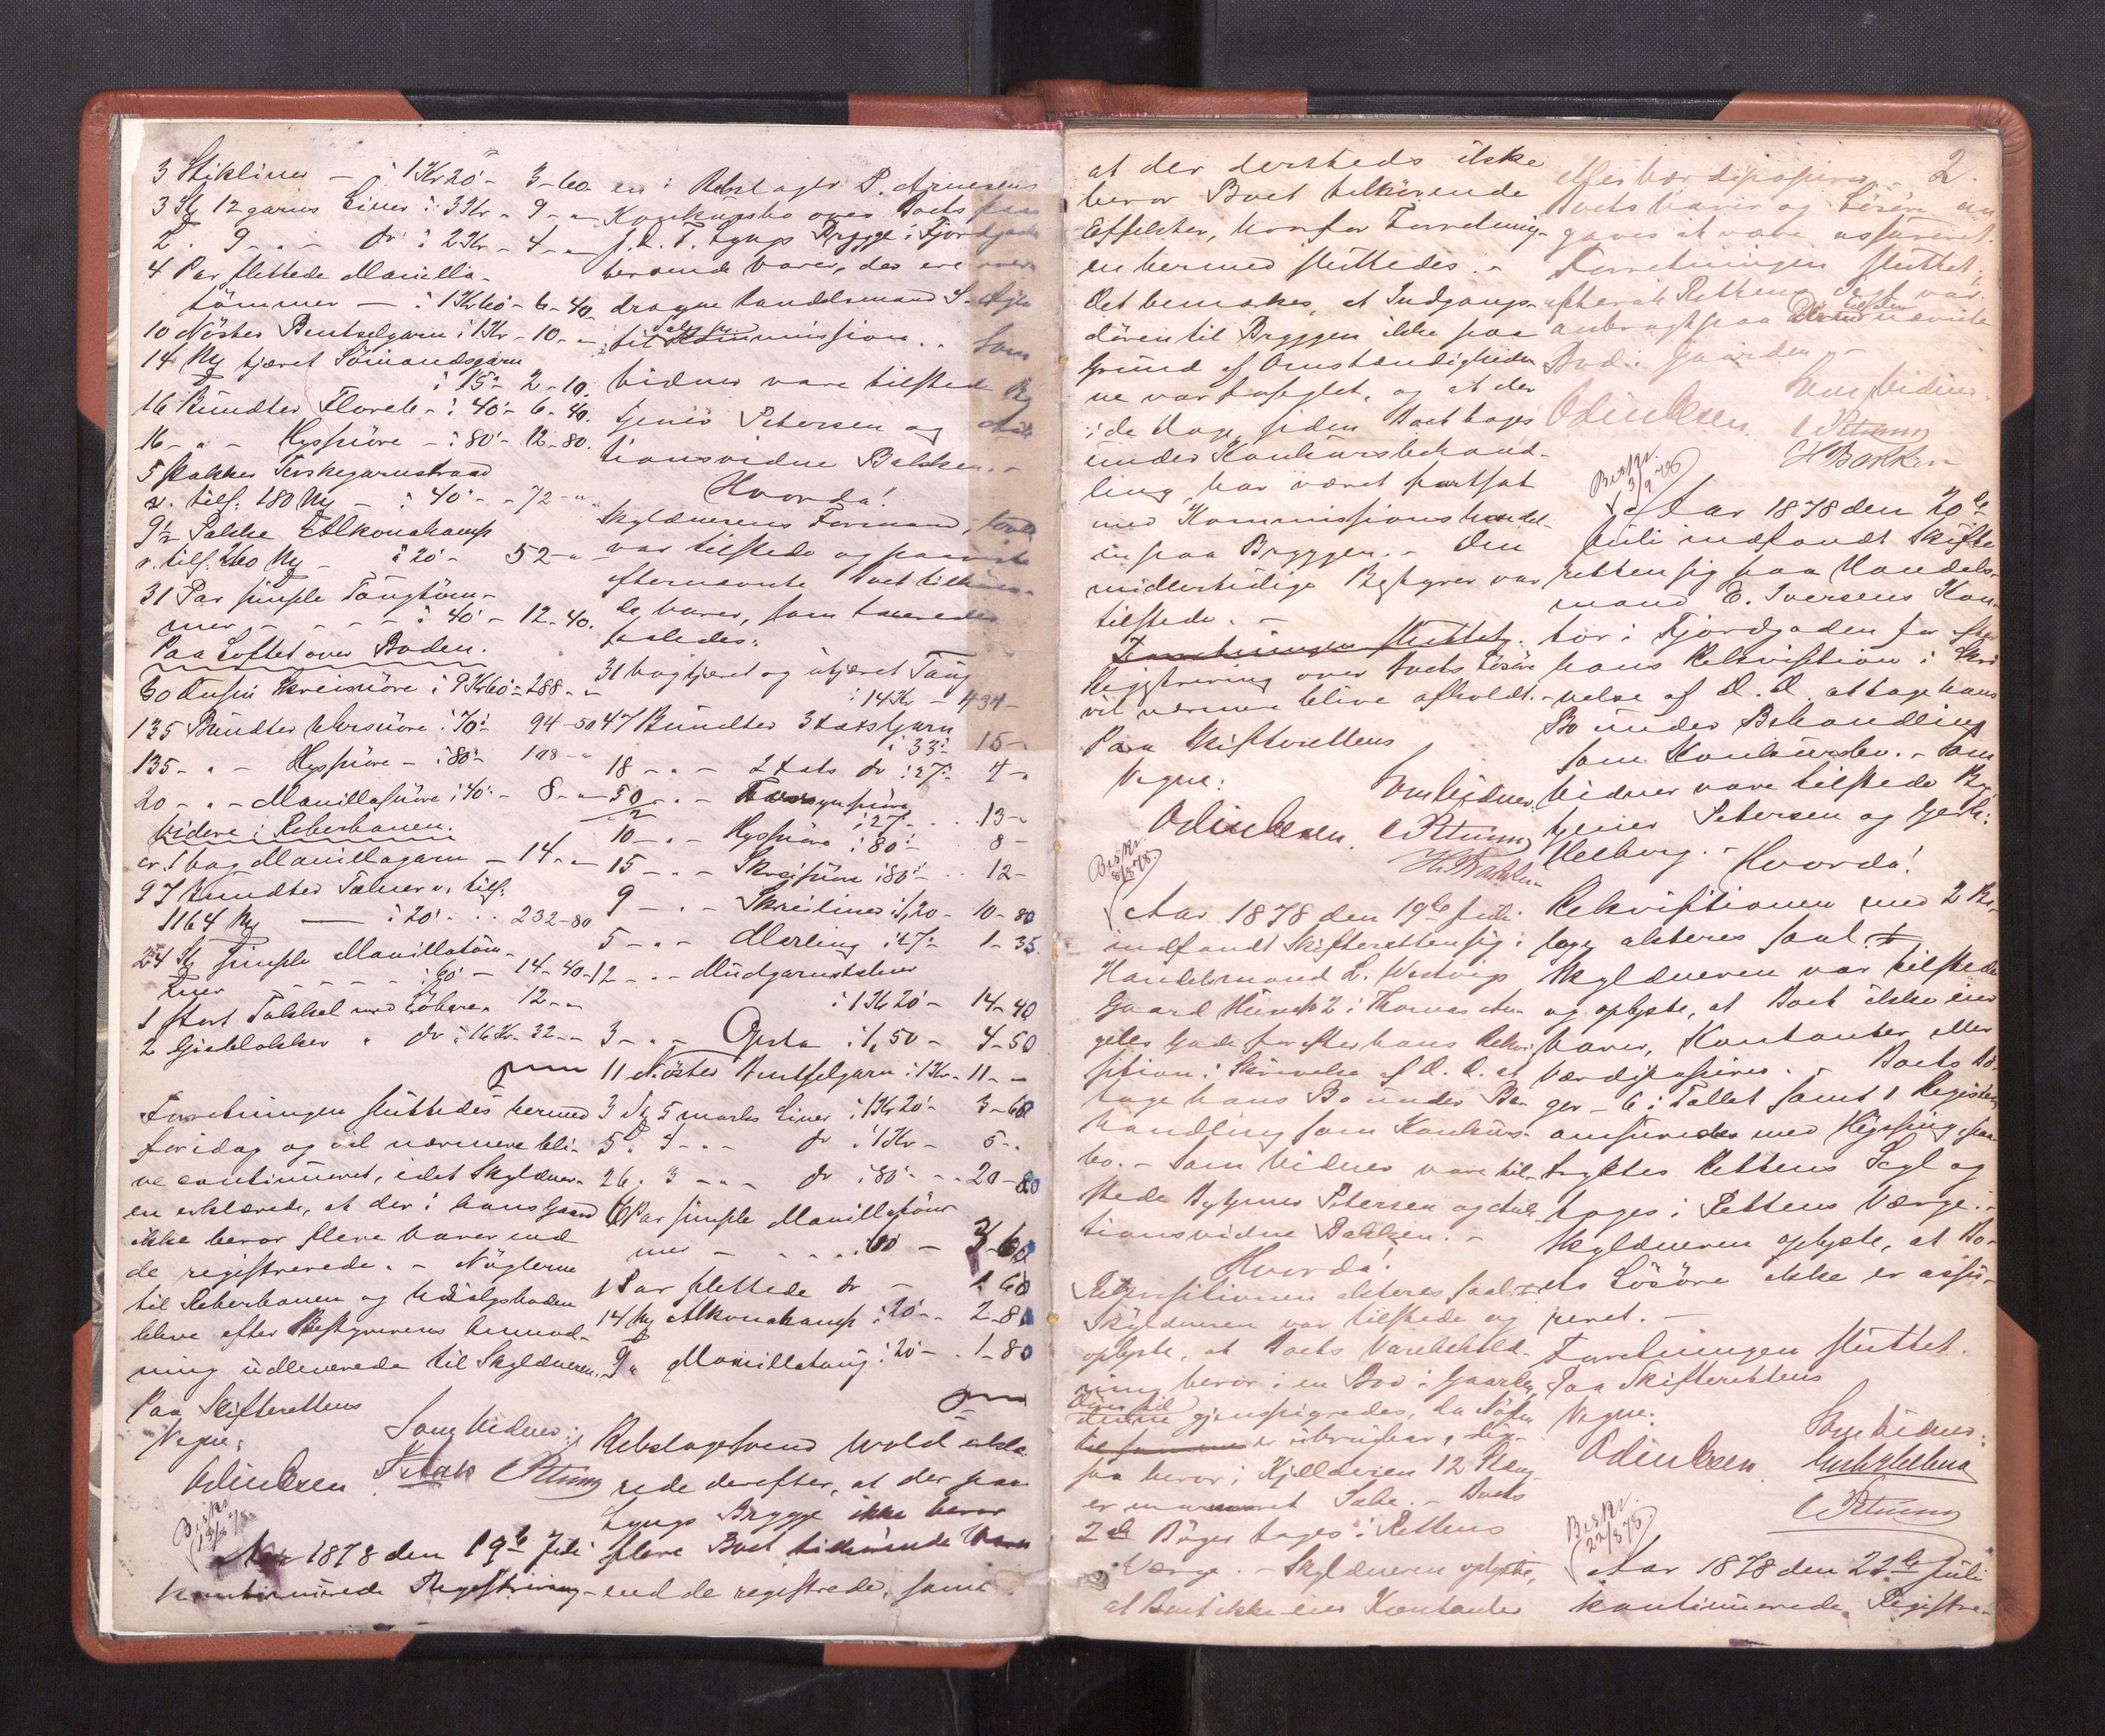 3 Stikliner — à 1 Kr 20 - 3-60
3 St 12 garns Liner à 3 Kr - 9 - "
2 " 9 - " - do à 2 Kr - 4 - "
4 Par flettede Manilla-
tömmer — à 1 Kr 60 - 6-40
10 Nöster Bentselgarn à 1 Kr - 10 - "
14 tjæret Sömandsgarn
à 15 - 2-10.
16 Bundter - à 40 - 6-40.
16 - " - Hyssnöre - à 80 - 12-80.
5 Pakker
v. tils. 180 - à 40 - 72 - "
9½ Pakke
v. tils. 260 - à 20 - 52 - "
31 Par simple Tougtöm-
mer - - - à 40 - 12-40.
Paa Loftet over Boden.
30 Dusin Skreisnöre à 9 Kr 60 - 288 - "
135 Bundter Vorsnöre à 70 - 94-50
135 - " - Hyssnöre - à 80 - 108 - "
20 - " - Manillasnöre à 40 - 8 - "
Videre i Reberbanen.
ca. 1 Vog Manillagarn - 14 - "
97 Bundter Talner v. tils.
1164 — à 20 - 232-80
24 St simple Manillatöm-
mer - - - à 60 - 14-40
1 stort Takkel med Löbere 12 - "
2 Gieblokker " do à 16 Kr - 32 - "
Forretningen sluttedes hermed
for idag og vil nærmere bli-
ve continueret, idet Skyldner-
en erklærede, at der i hans Gaard
ikke beror flere Varer end
de registrerede. - Nöglerne
til Reberbanen og Udsalgsboden
bleve efter Bestyrerens Anmod-
ning udleverede til Skyldneren.
Paa Skifterettens
Vegne:
Som Vidner:
Odin Olsen
Aar 1878 den 19de Juli
kontinuerede Registrering-
en i Rebslager P. Arnesens
Konkursbo over Boets paa
J. L. F. Lyngs Brygge i Fjordgaden
beroende Varer, der ere over-
dragne Handelsmand S.
til Salg i Kommission. - Som
Vidner vare tilstede By-
tjener Petersen og Auk-
tionsvidne Bakken. -
Hvorda!
Skyldnerens Formand,
var tilstede og paaviste
efternævnte Boet tilhören-
de Varer, som taxeredes
saaledes:
31 Vog tjæret og utjæret Toug
à 14 Kr - 434 -
47 Bundter 3 tots Garn
à 33 - 15 -
18 - " - 2 tots do à 27 - 4 - "
50 - " -
à 27 - 13 -
10 - " - Hyssnöre à 80 - 8 -
15 - " - Skreisnöre à 80 - 12 -
9 - " - Skreiliner à 1,20 - 10-80
5 - " - Merling à 27 - 1-35
12 - " -
à 1 Kr 20 - 14-40
3 - " - à 1,50 - 4-50
11 Nöster Bentselgarn à 1 Kr - 11 - "
3 St 5 marks Liner à 1 Kr 20 - 3-60
5 " 4 - " - do à 1 Kr - 5 - "
26 " 3 - " - do à 80 - 20-80
6 Par simple Manillatöm-
mer - - - 60 - 3-60
1 Par flettede do - 1-60
14 à 20 - 2-80
9 " Manillatoug à 20 - 1-80
Rebslagersvend Wold erklæ-
rede derefter, at der paa
Lyngs Brygge ikke beror
flere Boet tilhörende Varer
end de registrede, samt
2.
at der dersteds ikke
beror Boet tilhörende
Effekter, hvorfor Forretning-
en hermed sluttedes. -
Det bemærkes, at Indgangs-
dören til Bryggen ikke paa
Grund af Omstændigheder-
ne var forseglet, og at der
i de Dage, siden Boet toges
under Konkursbehand-
ling, har været fortsat
med Kommissionshandel-
en paa Bryggen. - Den
midlertidige Bestyrer var
tilstede. -
Forretningen sluttet.
Registrering over Boets Lösöre
vil nærmere blive afholdt. -
Paa Skifterettens
Vegne:
Som Vidner:
Odin Olsen.
H. Bakken
Aar 1878 den 19de Juli
indfandt Skifteretten sig i
Handelsmand L. Westvigs
Gaard No 2 i Thomas An-
gells Gade for efter hans Rekvi-
sition i Skrivelse af D. D. at
tage hans Bo under Be-
handling som Konkurs-
bo. - Som Vidner vare til-
stede Bytjener Petersen og Auk-
tionsvidne Bakken. -
Hvorda!
Rekvisitionen akteres saal.
Skyldneren var tilstede og
oplyste, at Boets Varebehold-
ning beror i en Bod i Gaarden,
Dör til
denne gjenspigredes, da Nöglen
til samme er ubrugbar, lige-
saa beror i Kjelderen 12
Boets
2de Böger toges i Rettens
Værge. - Skyldneren oplyste,
at Boet ikke eier Kontanter
eller Værdipapirer. -
Boets Varer og Lösöre an-
gaves at være assureret.
Forretningen sluttet,
efterat Rettens Segl var
anbragt paa Dören til den nævnte
Bod i Gaarden. -
Som Vidner:
Odin Olsen.
H Bakken
Aar 1878 den 20de
Juli indfandt Skifte-
retten sig paa Handels-
mand E. Iversens Kon-
tor i Fjordgaden for efter
hans Rekvisition i Skri-
velse af D. D. at tage hans
Bo under Behandling
som Konkursbo. - Som
Vidner vare tilstede By-
tjener Petersen og Gerh.
Helberg. - Hvorda!
Rekvisitionen med 2 Bi-
lage akteres saal.
Skyldneren var tilstede
og oplyste, at Boet ikke eier
Varer, Kontanter eller
Værdipapirer. - Boets Bö-
ger - 6 i Tallet samt 1 Register
omsnöredes med Hyssing, paa-
tryktes Rettens Segl og
toges i Rettens Værge. -
Skyldneren oplyste, at Bo-
ets Lösöre ikke er assu-
reret. -
Forretningen sluttet.
Paa Skifterettens
Vegne:
Som Vidner:
Odin Olsen.
Aar 1878 den 22de Juli
kontinuerede Registre-